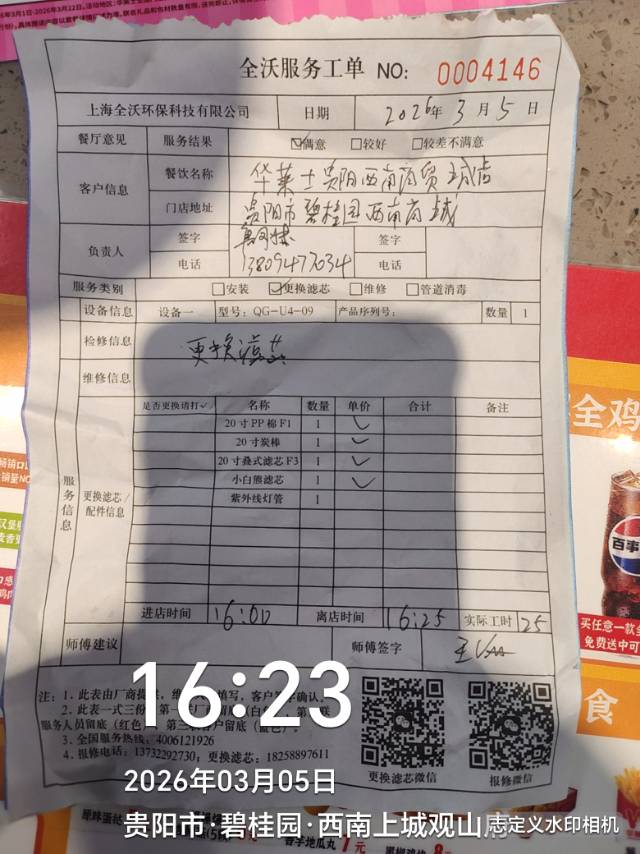 全沃服务工单 NO: 0004146
上海全沃环保科技有限公司 日期 2026年 3 月 5 日
餐厅意见 服务结果 ☑满意 □较好 □较差不满意
客户信息 餐饮名称 华莱士贵阳西南商贸城店
门店地址 贵阳市碧桂园西南商城
负责人 签字 签字
电话 13809477034 电话
服务类别 □安装 ☑更换滤芯 □维修 □管道消毒
设备信息 设备一 型号: QG-U4-09 产品序列号: 数量 1
检修信息 更换滤芯
维修信息
服务信息
更换滤芯/配件信息
是否更换请打✓ 名称 数量 单价 合计 备注
20寸PP棉F1 1 ✓
20寸炭棒 1 ✓
20寸叠式滤芯F3 1 ✓
小白熊滤芯 1 ✓
紫外线灯管 1
进店时间 16:00 离店时间 16:25 实际工时 25
师傅建议 师傅签字
16:23
注: 1. 此表由厂商提 填写, 客户 确认。
2. 此表一式三份, 第一
服务人员留底(红色), 第三 客户留底(蓝色)。
3. 全国服务热线: 4006121926
4. 报修电话: 13732292730; 更换滤芯: 18258897611
更换滤芯微信 报修微信
2026年03月05日
贵阳市·碧桂园·西南上城观山
志定义水印相机
全鸡
百事
买任意一款
免费送中可
食
香芋地瓜丸